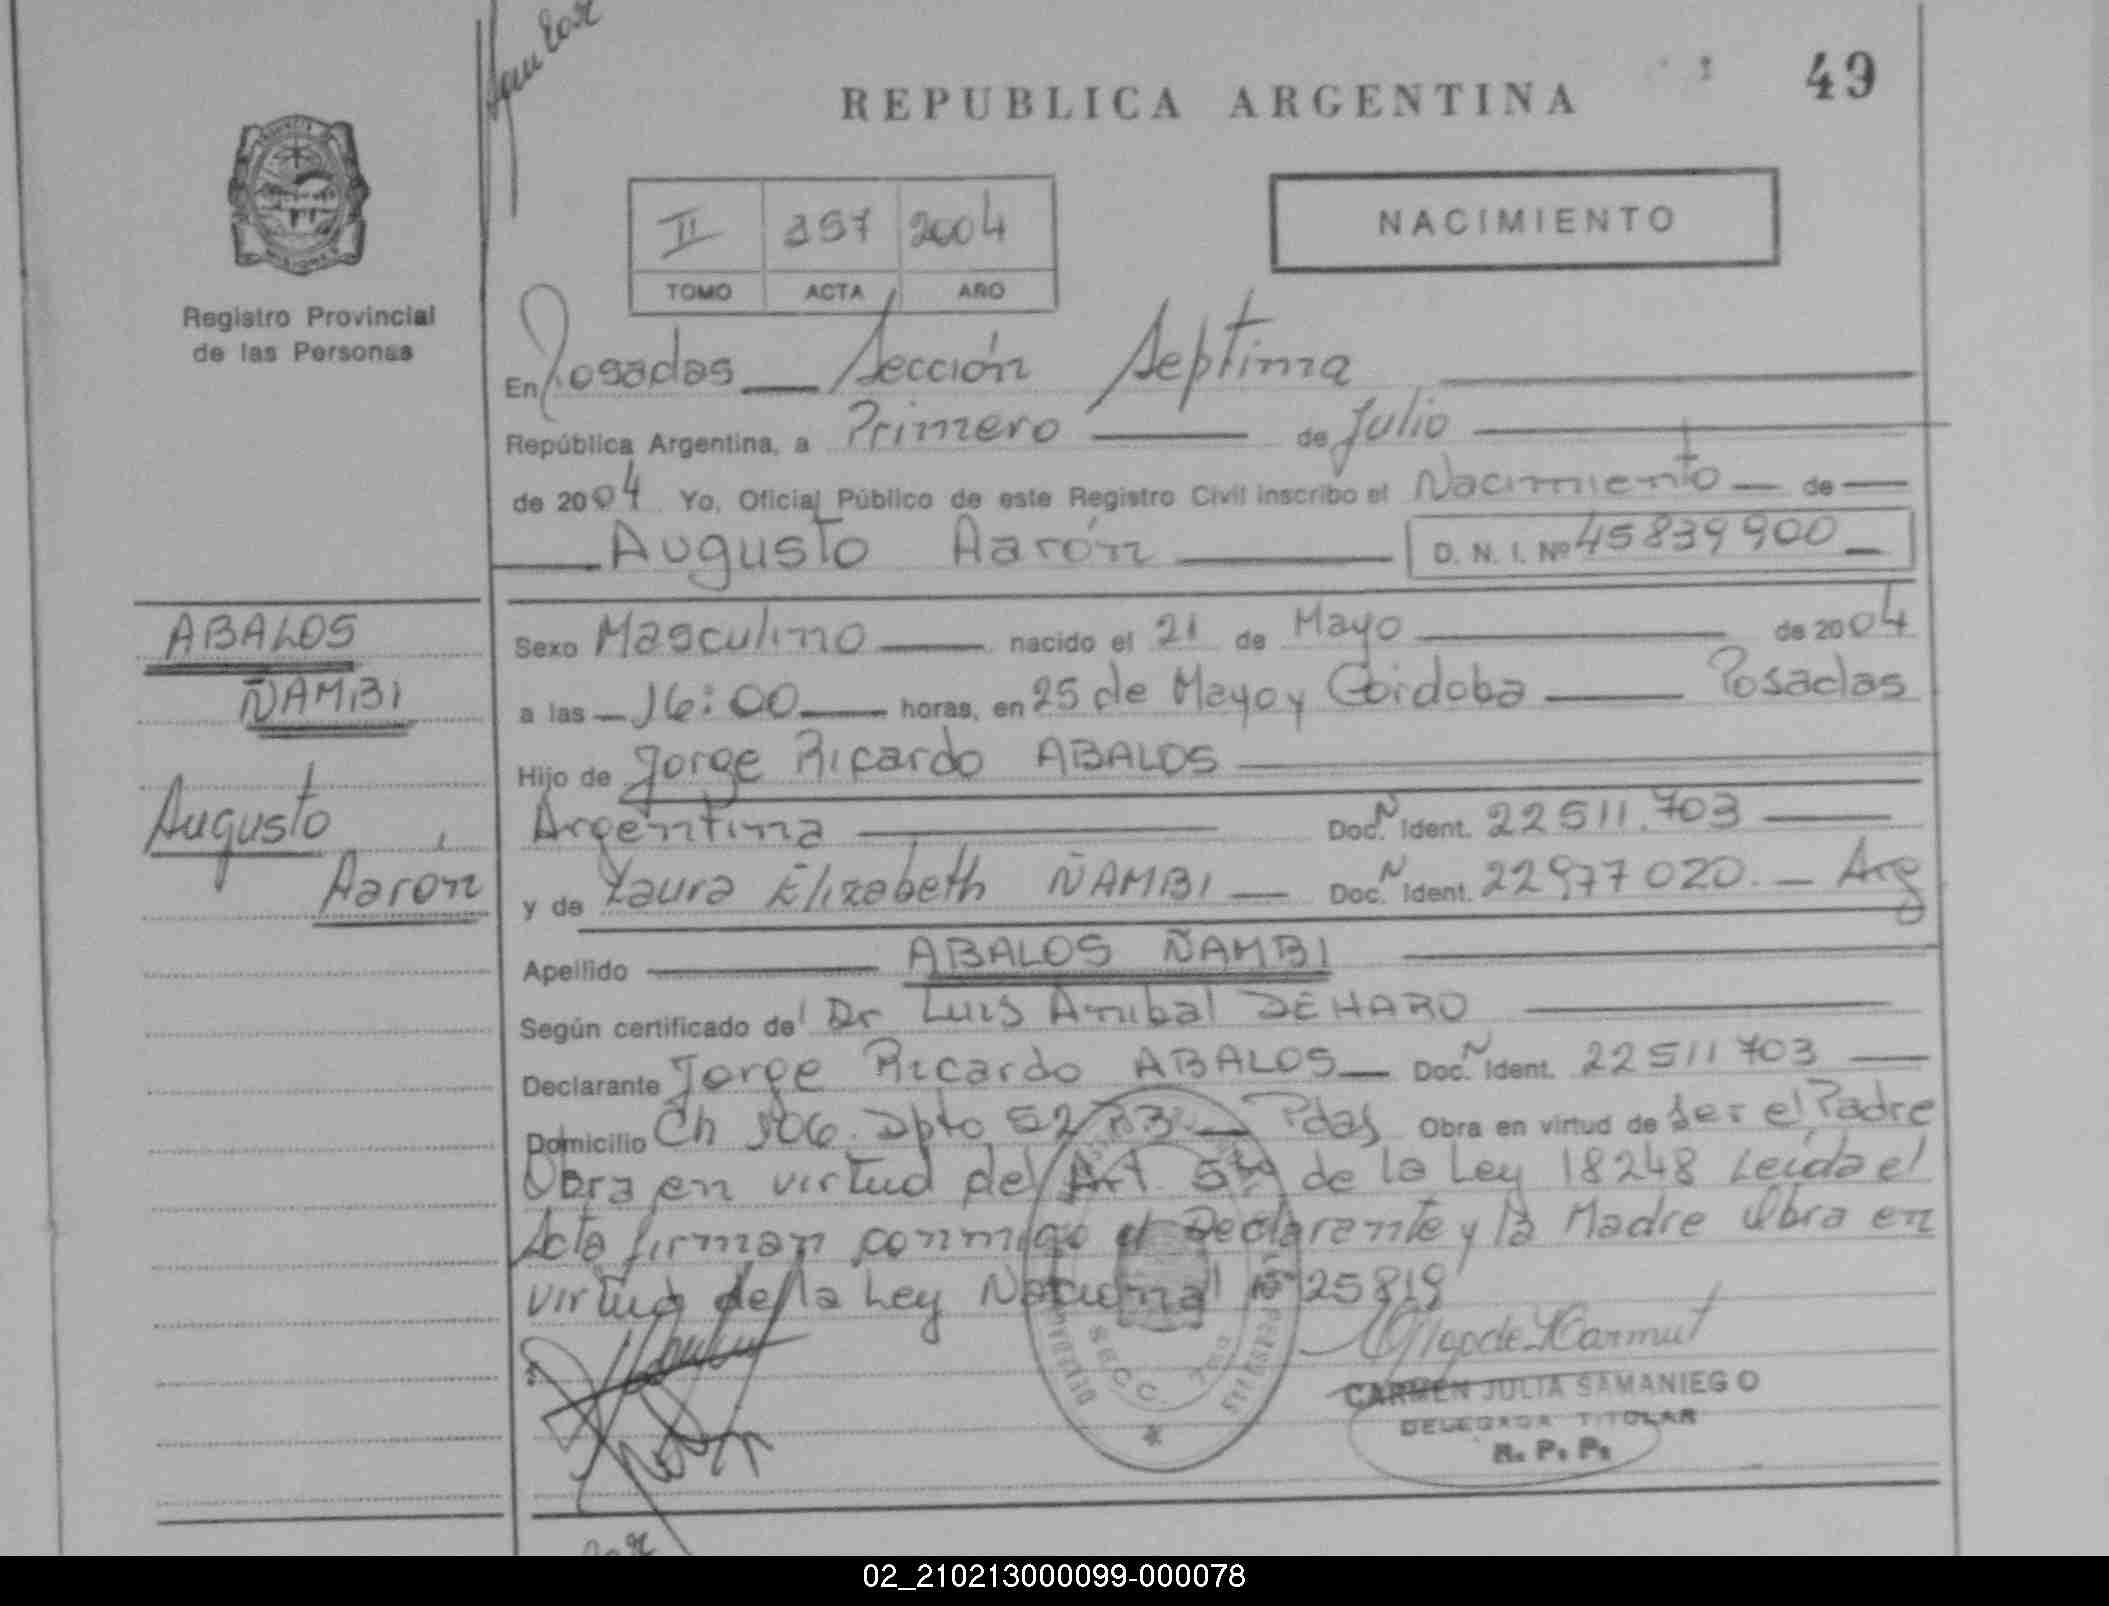 REPUBLICA ARGENTINA
49
Registro Provincial
de las Personas
II 197 2004
TOMO ACTA AÑO
NACIMIENTO
En Posadas Sección Septima
República Argentina, a Primero de Julio
de 2004 Yo, Oficial Público de este Registro Civil inscribo el Nacimiento de
Augusto Aarón D. N. I. Nº 45839900
ABALOS
ÑAMBI
Augusto
Aarón
Sexo Masculino nacido el 21 de Mayo de 2004
a las 16:00 horas, en 25 de Mayo y Córdoba Posadas
Hijo de Jorge Ricardo ABALOS
Argentina Doc. N Ident. 22511.703
y de Laura Elizabeth ÑAMBI Doc. N Ident. 22977020. Arg
Apellido ABALOS ÑAMBI
Según certificado de Dr Luis Anibal DEHARO
Declarante Jorge Ricardo ABALOS Doc. N Ident. 22511703
Domicilio Ch 106. Dpto 52 Pdas Obra en virtud de ser el Padre
Obra en virtud del Art 5to de la Ley 18248 Leída el
Acta firman conmigo el Declarante y la Madre Obra en
virtud de la Ley Nacional Nº 25819
SECC. 7ma
CARMEN JULIA SAMANIEGO
DELEGADA TITULAR
R. P. P.
02_210213000099-000078